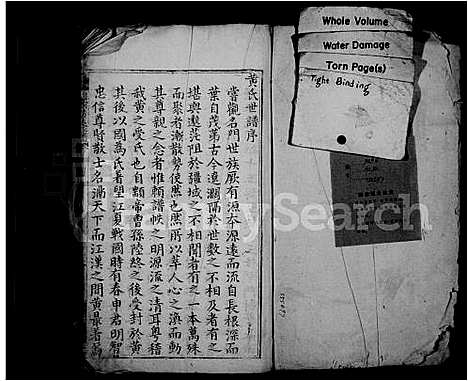 Whole Volume
Water Damage
Torn Page(s)
Tight Binding
黄氏世譜序
嘗觀名門世族厥有淵夲源遠而流自長根深而
葉自茂第古今遼濶隔於世數之不相及者有之
堪輿遼茫阻於疆域之不相聞者有之一本萬殊
而聚者漸散勢使然也然所以萃人心之渙而動
其尊親之念者惟頼譜帙之明源流之清耳粤稽
我黄之受氏也自顓帝曽孫陸終之後受封於黄
其後以國為氏著望江夏戰國時有春申君明智
忠信尊時敬士名滿天下而江漢之間黄最著焉
MySearch